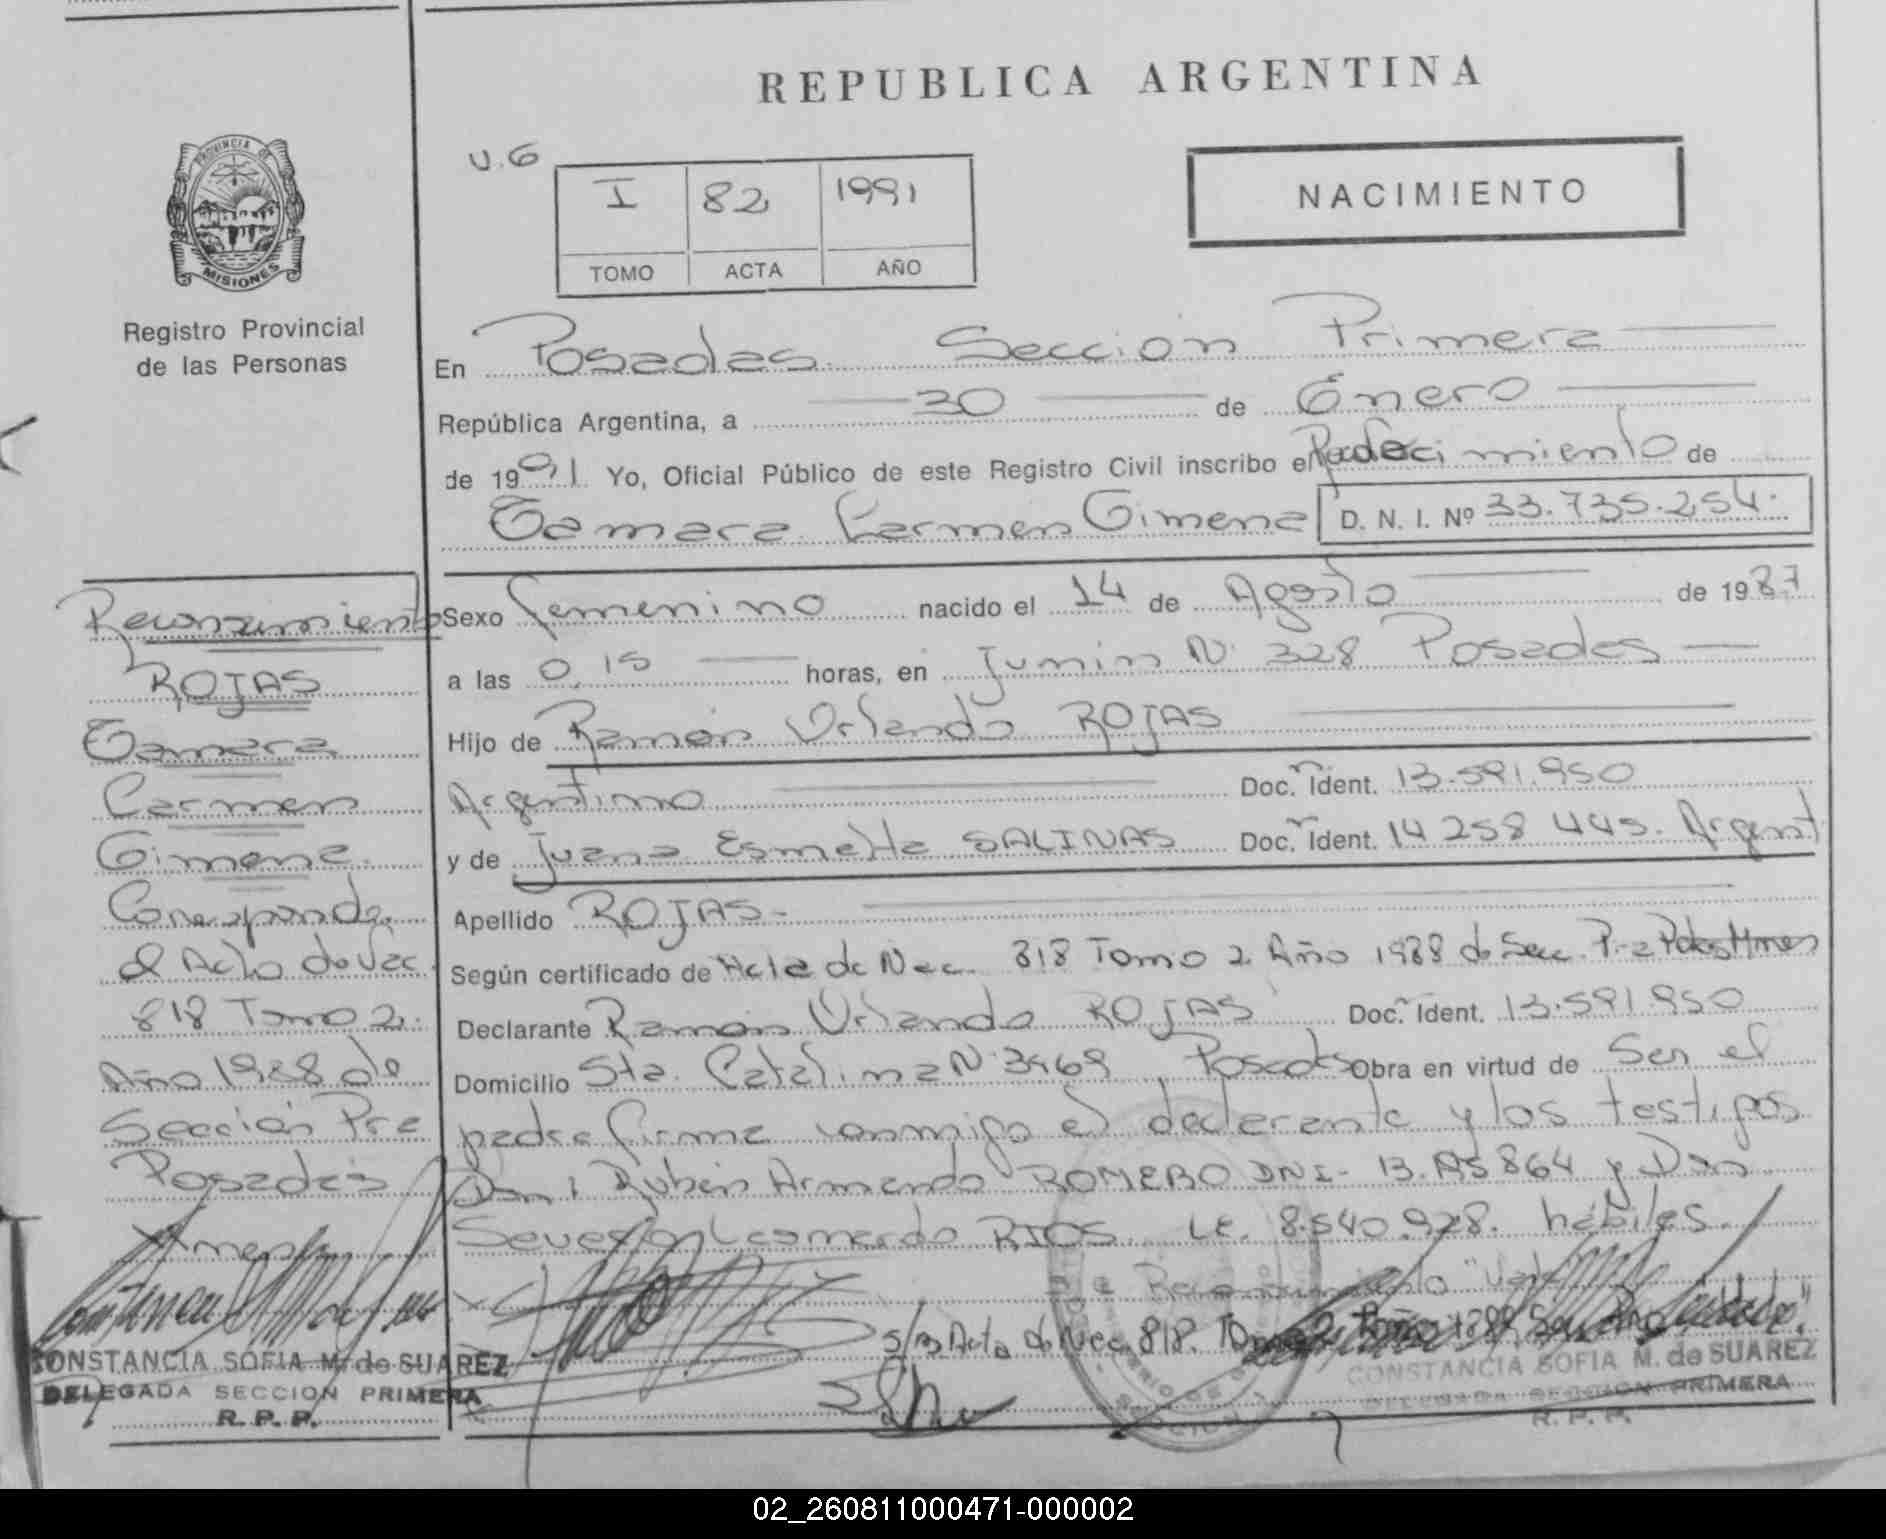 REPUBLICA ARGENTINA
PROVINCIA DE
MISIONES
Registro Provincial
de las Personas
U.G
I 82 1991
TOMO ACTA AÑO
NACIMIENTO
En Posadas Seccion Primera
República Argentina, a 30 de Enero
de 1991 Yo, Oficial Público de este Registro Civil inscribo el de
Tamara Carmen Gimena D. N. I. Nº 33.735.254.
Sexo femenino nacido el 14 de Agosto de 1987
a las 0,15 horas, en Junin N· 328 Posadas
Hijo de Ramón Orlando ROJAS
Argentino Doc. Ident. 13.591.950
y de Juana Esmelda SALINAS Doc. Ident. 14 258 445. Argent
Apellido ROJAS-
Según certificado de Acta de Nac. 818 Tomo 2 Año 1988 de Sec. Pra
Declarante Ramón Orlando ROJAS Doc. Ident. 13.591.950
Domicilio Sta. Catalina N·3469 Posadas Obra en virtud de Ser el
padre firma conmigo el declarante y los testigos
Don: Rubén Armando ROMERO DNI- y Don
Leonardo RIOS LE. 8.540.928. hábiles.
Reconocimiento "Vale
S/R Acta de Nac. 818.
CONSTANCIA SOFIA M. de SUAREZ
DELEGADA SECCION PRIMERA
R. P. P.
Reconocimiento
ROJAS
Tamara
Carmen
Gimena.
Corresponde
al Acta de Nac.
818 Tomo 2.
Año 1988 de
Sección Pra
Posadas
CONSTANCIA SOFIA M. de SUAREZ
DELEGADA SECCION PRIMERA
R. P. P.
02_260811000471-000002